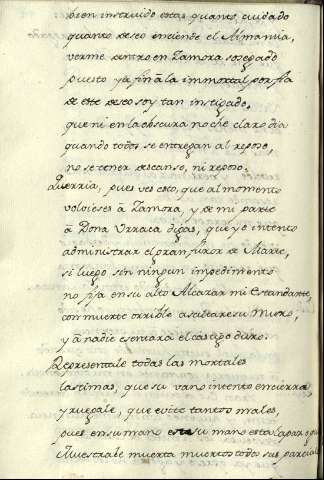 bien instruido estas quanto, cuidado
quanto deseo enciende el Alma mia,
verme dentro en Zamora sosegado
puesto ya fin â la immortal porfia
de este deseo soy tan instigado,
que ni en la obscura noche claro dia
quando todos se entregan al reposo,
no se tener descanso, ni reposo.
Querria, pues ves esto, que al momento
volvieses â Zamora, y de mi parte
â Doña Urraca digas, que yo intento
administrar el gran furor de Marte,
si luego sin ningun impedimento
no fija en su alto Alcazar mi Estandarte,
con muerte orrible asaltare su Muro,
y â nadie esentarâ el castigo duro.
Representale todas las mortales
lastimas, que su vano intento encierra,
y ruegale, que evite tantos males,
pues en su mano esta su mano esta la paz o
Muestrale muerta muertos todos sus parcial